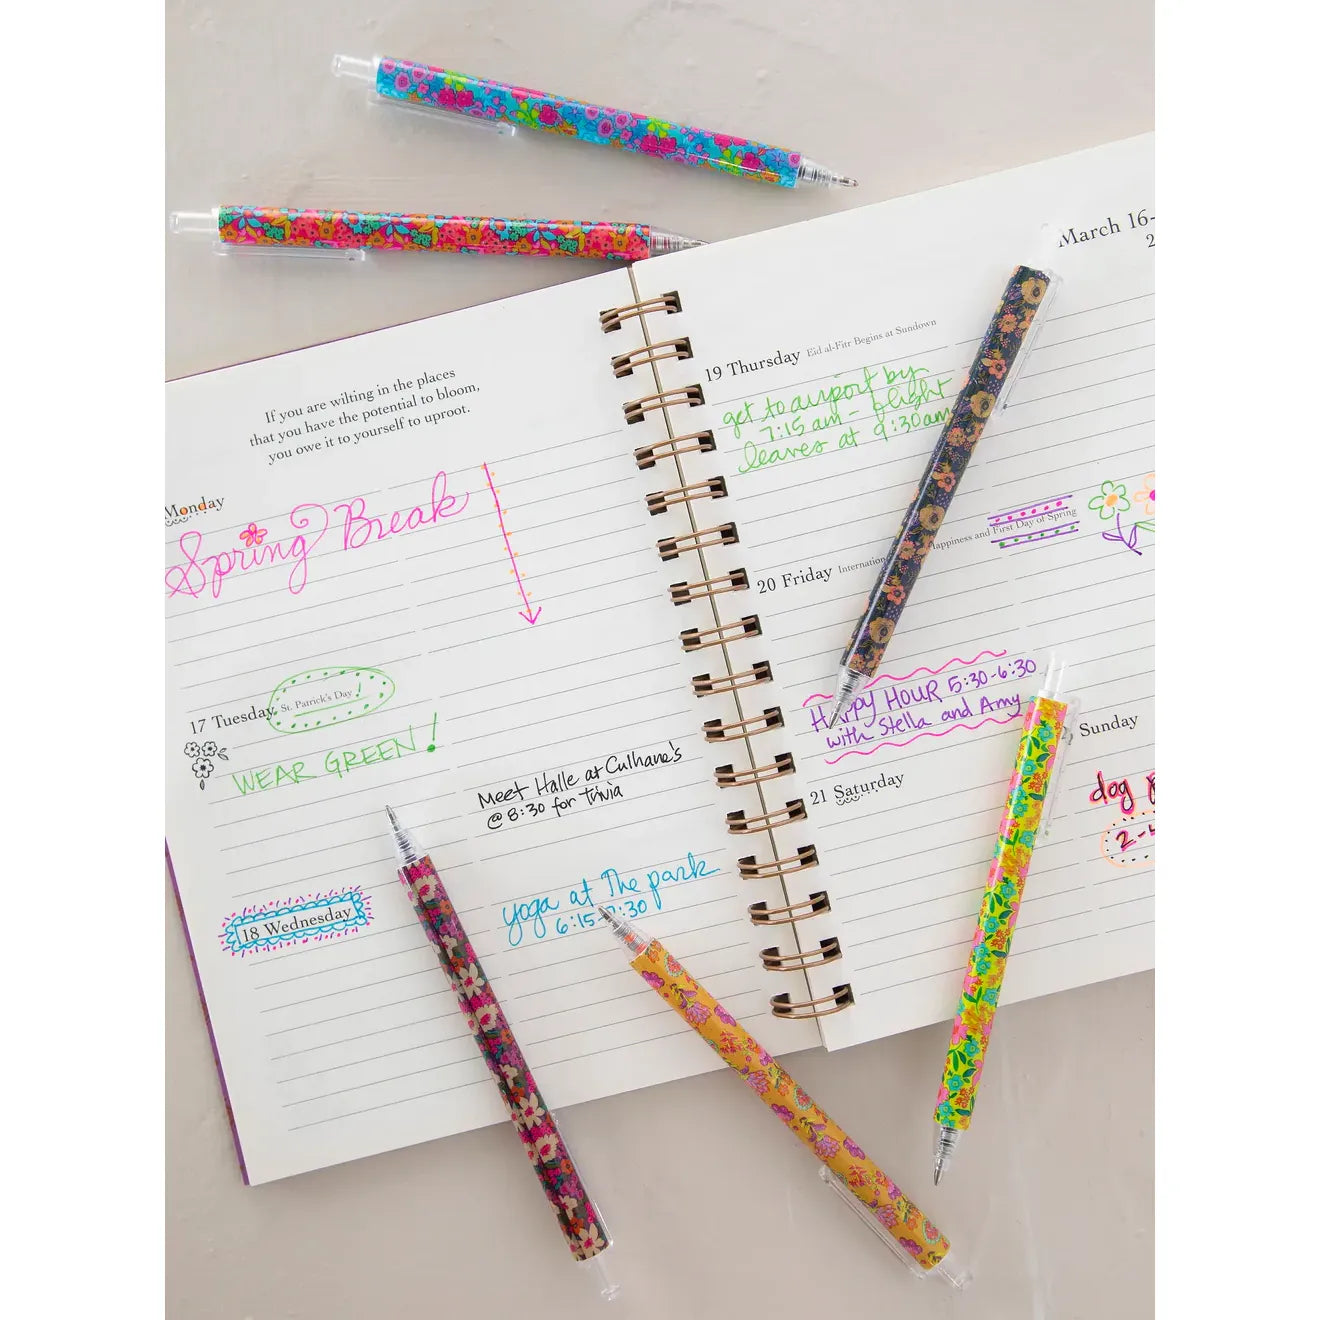 If you are wilting in the places
that you have the potential to bloom,
you owe it to yourself to uproot.
Monday
Spring Break
17 Tuesday St. Patrick's Day
WEAR GREEN!
Meet Halle at Culhane's
@ 8:30 for trivia
18 Wednesday
yoga at The park
6:15-7:30
March 16-
2
19 Thursday Eid al-Fitr Begins at Sundown
get to airport by
7:15 am - flight
leaves at 9:30am
20 Friday Internation
Happiness and First Day of Spring
HAPPY HOUR 5:30-6:30
with Stella and Amy
21 Saturday
Sunday
dog
2-4